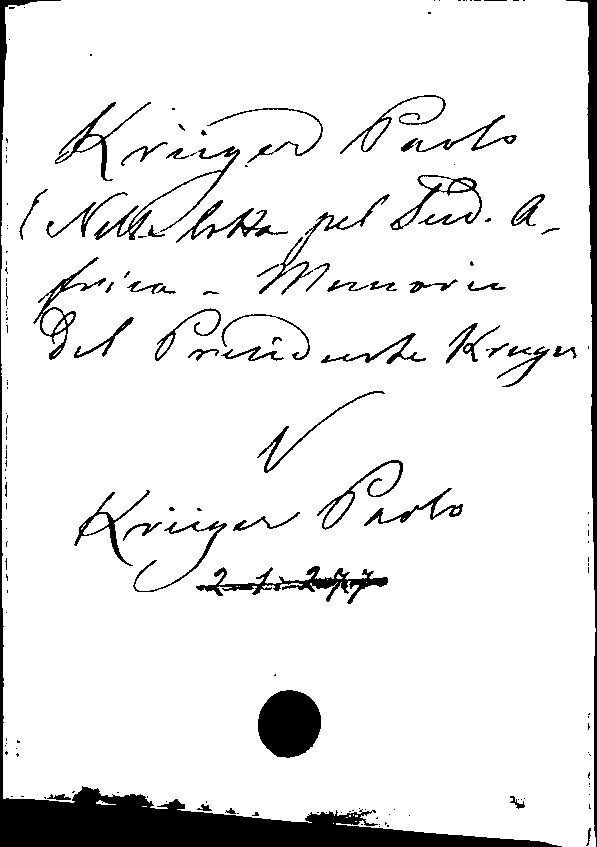 Krüger Paolo
(Nella lotta pel Sud. A-
frica - Memorie
del Presidente Kruger
V
Krüger Paolo
2. 1. 277